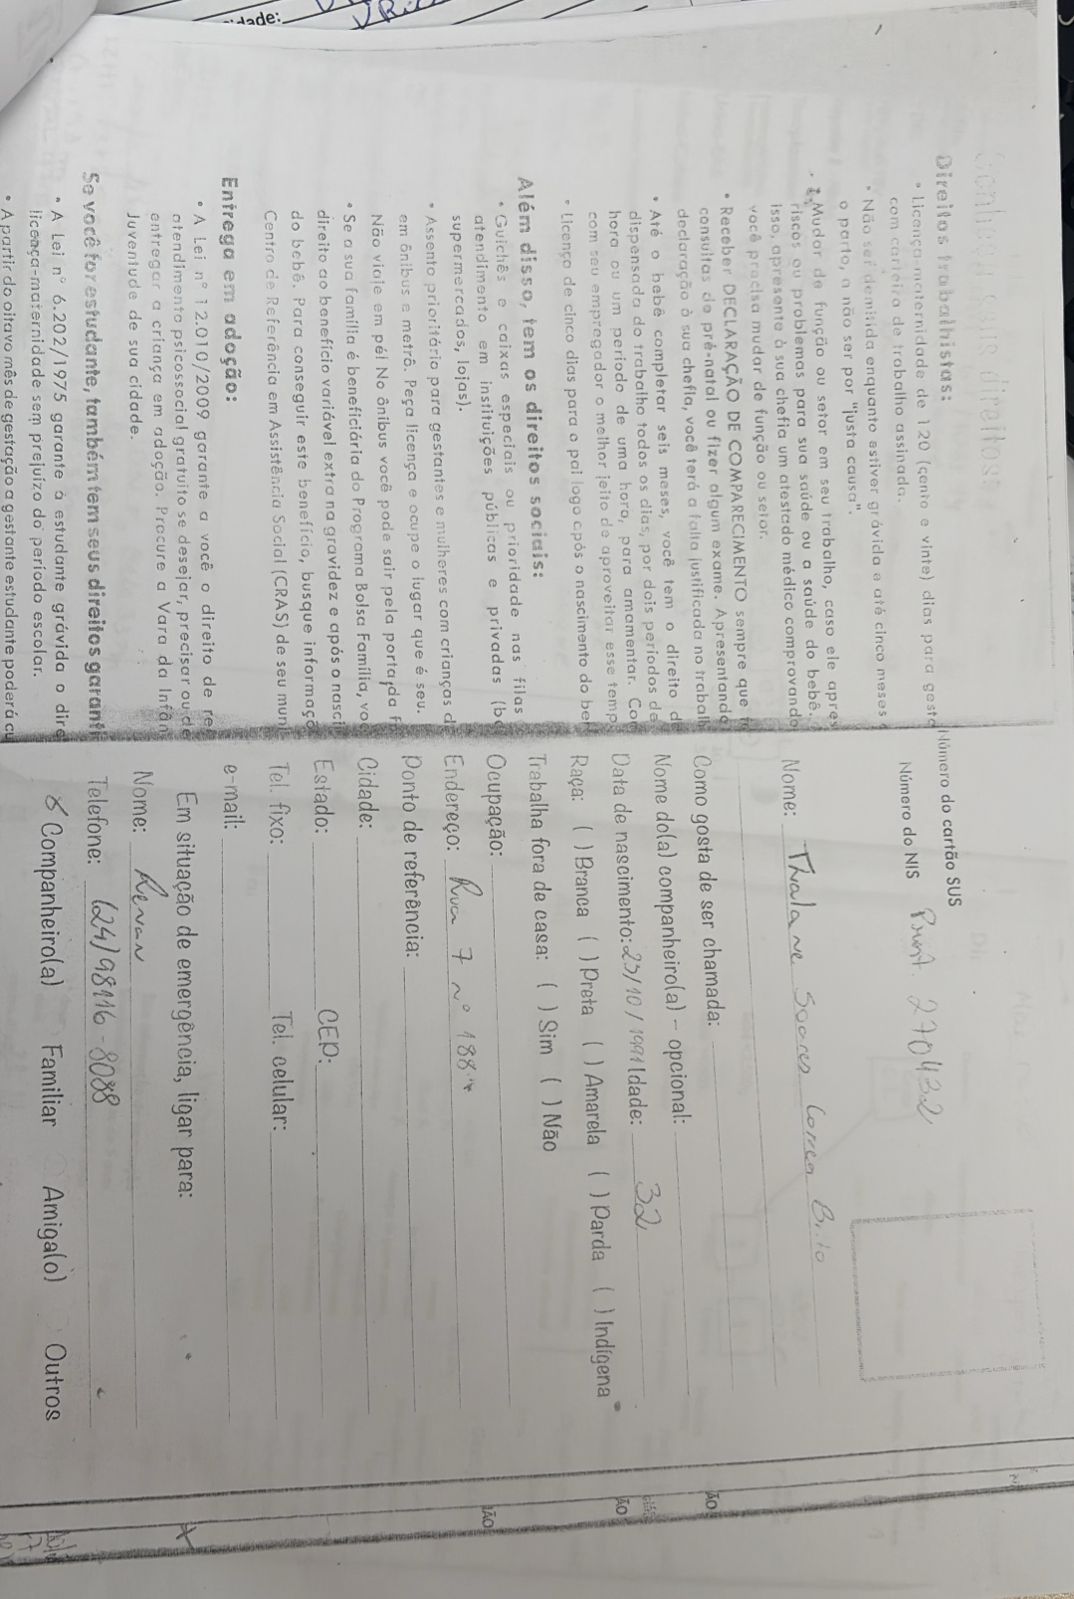 Conheça seus direitos
Direitos trabalhistas:
• Licença-maternidade de 120 (cento e vinte) dias para gesta
com carteira de trabalho assinada.
• Não ser demitida enquanto estiver grávida e até cinco meses
o parto, a não ser por "justa causa".
• Mudar de função ou setor em seu trabalho, caso ele apres
riscos ou problemas para sua saúde ou a saúde do bebê.
isso, apresente à sua chefia um atestado médico comprovando
você precisa mudar de função ou setor.
• Receber DECLARAÇÃO DE COMPARECIMENTO sempre que
consultas de pré-natal ou fizer algum exame. Apresentando
declaração à sua chefia, você terá a falta justificada no trabalh
• Até o bebê completar seis meses, você tem o direito d
dispensada do trabalho todos os dias, por dois períodos de
hora ou um período de uma hora, para amamentar. Com
com seu empregador o melhor jeito de aproveitar esse temp
• Licença de cinco dias para o pai logo após o nascimento do be
Além disso, tem os direitos sociais:
• Guichês e caixas especiais ou prioridade nas filas
atendimento em instituições públicas e privadas (b
supermercados, lojas).
• Assento prioritário para gestantes e mulheres com crianças d
em ônibus e metrô. Peça licença e ocupe o lugar que é seu.
Não viaje em pé! No ônibus você pode sair pela porta da f
• Se a sua família é beneficiária do Programa Bolsa Família, vo
direito ao benefício variável extra na gravidez e após o nasci
do bebê. Para conseguir este benefício, busque informaçõ
Centro de Referência em Assistência Social (CRAS) de seu muni
Entrega em adoção:
• A Lei nº 12.010/2009 garante a você o direito de re
atendimento psicossocial gratuito se desejar, precisar ou de
entregar a criança em adoção. Procure a Vara da Infân
Juventude de sua cidade.
Se você for estudante, também tem seus direitos garanti
• A Lei nº 6.202/1975 garante à estudante grávida o dire
licença-maternidade sem prejuízo do período escolar.
• A partir do oitavo mês de gestação a gestante estudante poderá cu
Número do cartão SUS
Número do NIS
270432
Nome: Thalane Soares Correa Brito
Como gosta de ser chamada:
Nome do(a) companheiro(a) – opcional:
Data de nascimento: 23/10/1991 Idade: 32
Raça: ( ) Branca ( ) Preta ( ) Amarela ( ) Parda ( ) Indígena
Trabalha fora de casa: ( ) Sim ( ) Não
Ocupação:
Endereço: Rua 7 nº 188
Ponto de referência:
Cidade:
Estado: CEP:
Tel. fixo: Tel. celular:
e-mail:
Em situação de emergência, ligar para:
Nome: Renan
Telefone: (24) 98116-8088
X Companheiro(a) Familiar Amiga(o) Outros
idade:
ÃO
ÃO
ÃO